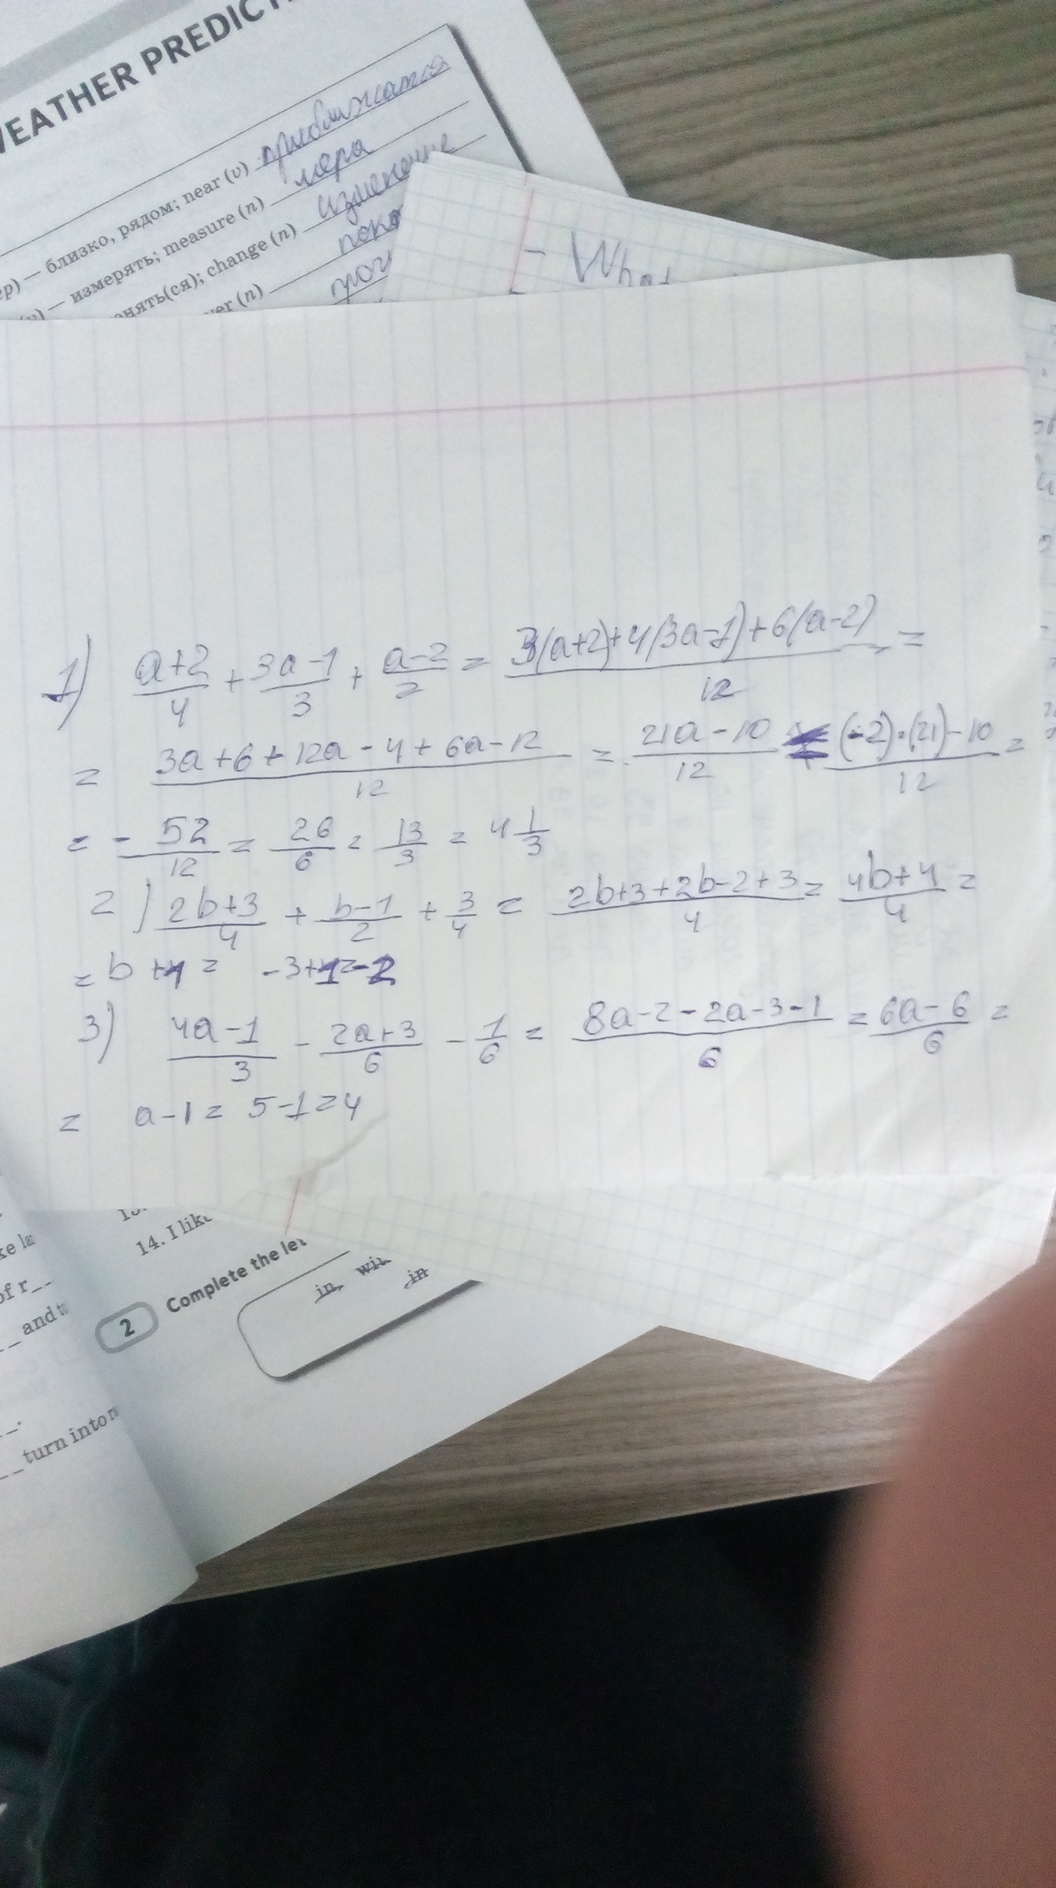 WEATHER PREDICT
— близко, рядом; near (v) приближатся
— измерять; measure (n) мера
нять(ся); change (n) изменение
er (n) пок
— What
1) a+2/4 + 3a-1/3 + a-2/2 = 3(a+2)+4(3a-1)+6(a-2)/12 =
= 3a+6+12a-4+6a-12/12 = 21a-10/12 = (-2)·(21)-10/12 =
= - 52/12 = 26/6 = 13/3 = 4 1/3
2) 2b+3/4 + b-1/2 + 3/4 = 2b+3+2b-2+3/4 = 4b+4/4 =
= b+1 = -3+1=-2
3) 4a-1/3 - 2a+3/6 - 1/6 = 8a-2-2a-3-1/6 = 6a-6/6 =
= a-1 = 5-1=4
14. I like
2 Complete the let
in wit
in
of r_
_ and t
_ turn into